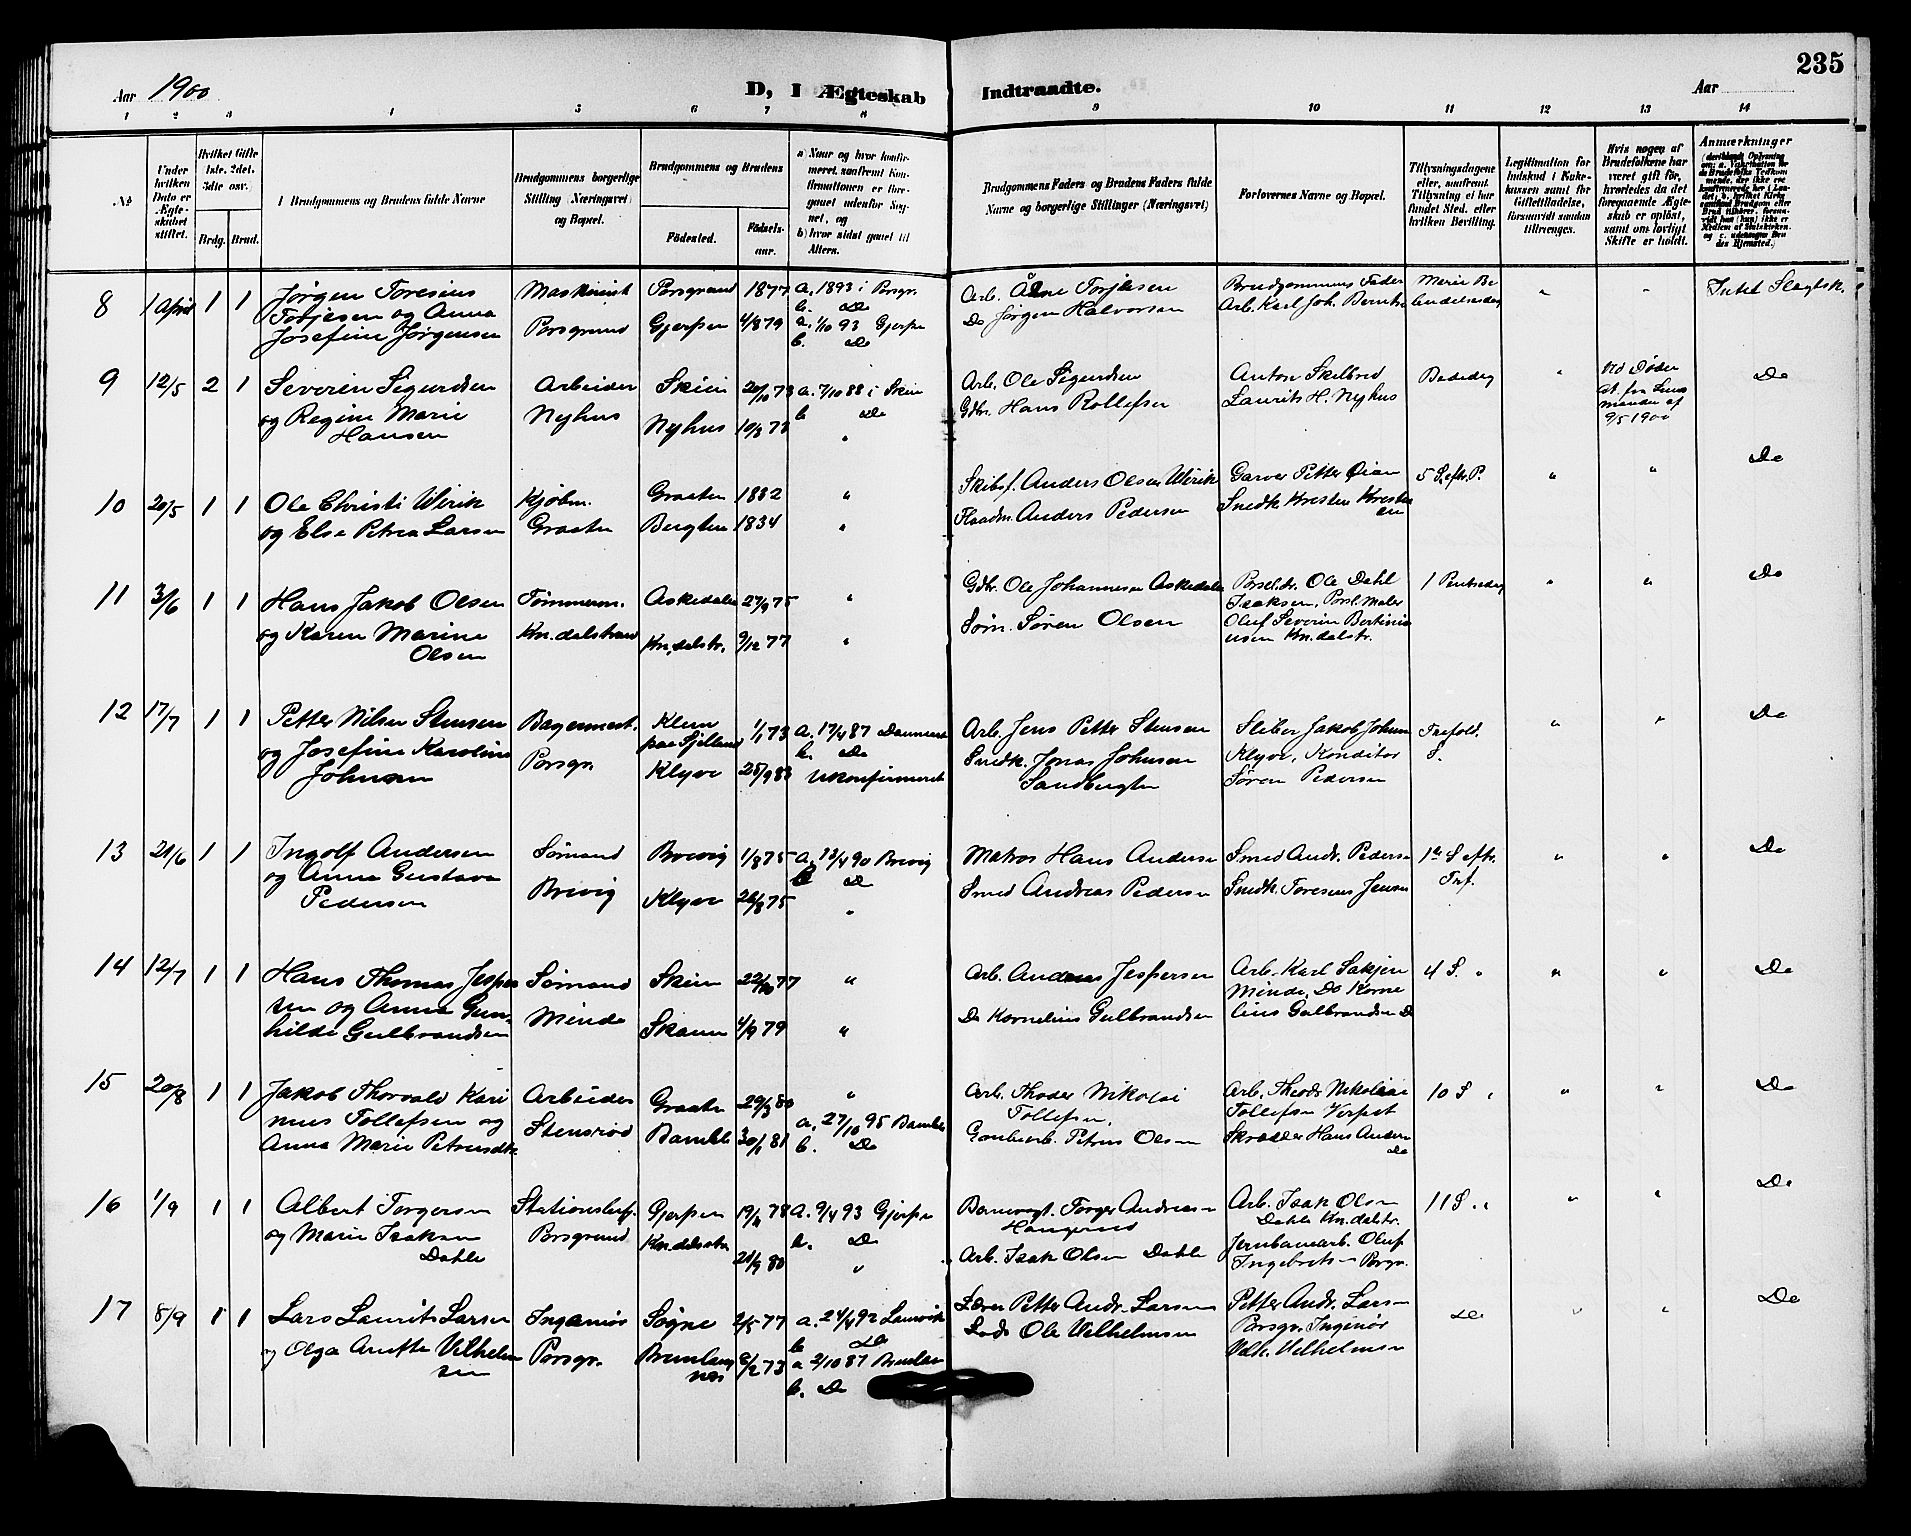 235
Aar 1900
D, I Ægteskab Indtraadte.
Aar
1 2 3 4 5 6 7 8 9 10 11 12 13 14
No
Under hvilken Dato er Ægteskabet stiftet.
Hvilket Gifte 1ste, 2det, 3die osv.
Brdg. Brud.
Brudgommens og Brudens fulde Navne
Brudgommens borgerlige Stilling (Næringsvei) og Bopæl.
Brudgommens og Brudens
Fødested.
Fødselsaar.
a) Naar og hvor konfirmeret, saafremt Konfirmationen er foregaaet udenfor Sognet, og
b) hvor sidst gaaet til Alters.
Brudgommens Faders og Brudens Faders fulde Navne og borgerlige Stillinger (Næringsvei)
Forlovernes Navne og Bopæl.
Tillysningsdagene eller, saafremt Tillysning ei har fundet Sted, efter hvilken Bevilling.
Legitimation for Indskud i Enkekassen samt for Giftetilladelse, forsaavidt saadan tiltrænges.
Hvis nogen af Brudefolkene har været gift før, hvorledes da det foregaaende Ægteskab er opløst, samt om lovligt Skifte er holdt.
Anmærkninger
8 1 April 1 1 Jørgen Toresius Maskinist Porsgrund 1877 a. 1893 i Porsgr.
Torjesen og Anna b. Do
Josefine Jørgensen Porsgrund Gjerpen 4/8 79 a. 1/10 93 Gjerpen
b. Do
Arb. Torjesen Brudgommens Fader
Do Jørgen Halvorsen Arb. Karl Joh. Intet Slegtsk.
9 12/5 2 1 Severin Sigurdsen Arbeider Skien 20/10 73 a. 7/10 88 i Skien
og Regine Marie Nyhus b Do
Hansen Nyhus 10/3 73 "
Arb. Ole Sigurdsen Anton Skilbred Bededag " Ved Døden
Gdbr. Hans Rollefsen Laurits H. Nyhus
9/5 1900 Do
10 20/5 1 1 Ole Christi Wirik Kjøbm. Graaten 1832 "
og Else Petrea Larsen Graaten Bergten 1834 "
Skibsf. Anders Olsen Wirik Garver Petter Øian 5 S. eftr. P. " " Do
Anders Pedersen Snedk. Kresten Kresten
sen
11 3/6 1 1 Hans Jakob Olsen Tømmerm. Askedalen 27/9 75 "
og Karen Marine Kn.dalstrand Kn.dalstr. 9/12 77 "
Olsen
Gdbr. Ole Johannesen Askedalen Porsel.dr. Ole Dahl 1 Pintsedag " " Do
Søm. Søren Olsen Isaksen, Porsl. Maler
Oluf Severin Bertinius
sen Kn.dalstr.
12 17/7 1 1 Petter Nilsen Stensen Bagermest. paa Sjelland 1/1 73 a. 17/4 87 Danmark
og Josefine Karoline Porsgr. b. Do
Johnsen Klyve 25/9 83 ukonfirmeret
Arb. Jens Petter Stensen Sliber Jakob Johnsen Trefold. " " Do
Snedk. Jonas Johnsen Klyve, Konditor S.
Sandbergten Søren Pedersen
13 21/6 1 1 Ingolf Andersen Sømand Brevig 1/8 75 a. 13/4 90 Brevig
og Anna Gustava Brevig b Do
Pedersen Klyve 26/8 75 "
Matros Hans Andersen Smed Andr. Pedersen 1ste S eftr. " " Do
Smed Andreas Pedersen Snedk. Toresius Jensen Trf.
14 12/7 1 1 Hans Thomas Jesper Sømand Skien 22/10 77 "
sen og Anna Gun-
hilde Gulbrandsen Minde Skaun 4/9 79 "
Arb. Andreas Jespersen Arb. Karl Sakjen 4 S. " " " Do
Do Kornelius Gulbrandsen Minde, Do Korne
lius Gulbrandsen Do
15 20/8 1 1 Jakob Thorvald Kari Arbeider Graaten 29/3 80 "
nus Tollefsen og Stensrød Bamble 30/1 81 a. 27/10 95 Bamble
Anna Marie Petrusdtr. b. Do
Arb. Thoder Nikolai Arb. Theodr Nikolai 10 S " " " Do
Tollefsen, Tollefsen
Petrus Olsen Skrædder Hans Anders
Do
16 1/9 1 1 Albert Torgersen Stationsbetj. Gjerpen 19/4 78 a. 9/4 93 Gjerpen
og Marie Isaksen Porsgrund Kn.dalstr. b. Do
Dahle 21/9 80 "
Banevogt. Torger Andreasen Arb. Isak Olsen 11 S. " " " Do
Haugerud Dahle Kn.dalstr.
Arb. Isak Olsen Dahle Jernbanearb. Oluf
Ingebretsen Porsgr.
17 8/9 1 1 Lars Laurits Larsen Ingeniør Søgne 2/5 77 a. 24/4 92 Laurvik
og Olga Anette Vilhelm Porsgr. Brunlanæs 8/2 73 b Do
sen a 2/10 87 Brunlan
b. Do
Lærer Petter Andr. Larsen Petter Andr. Larsen Do " " Do
Lods Ole Vilhelmsen Porsgr. Ingeniør
Vilh. Vilhelmsen